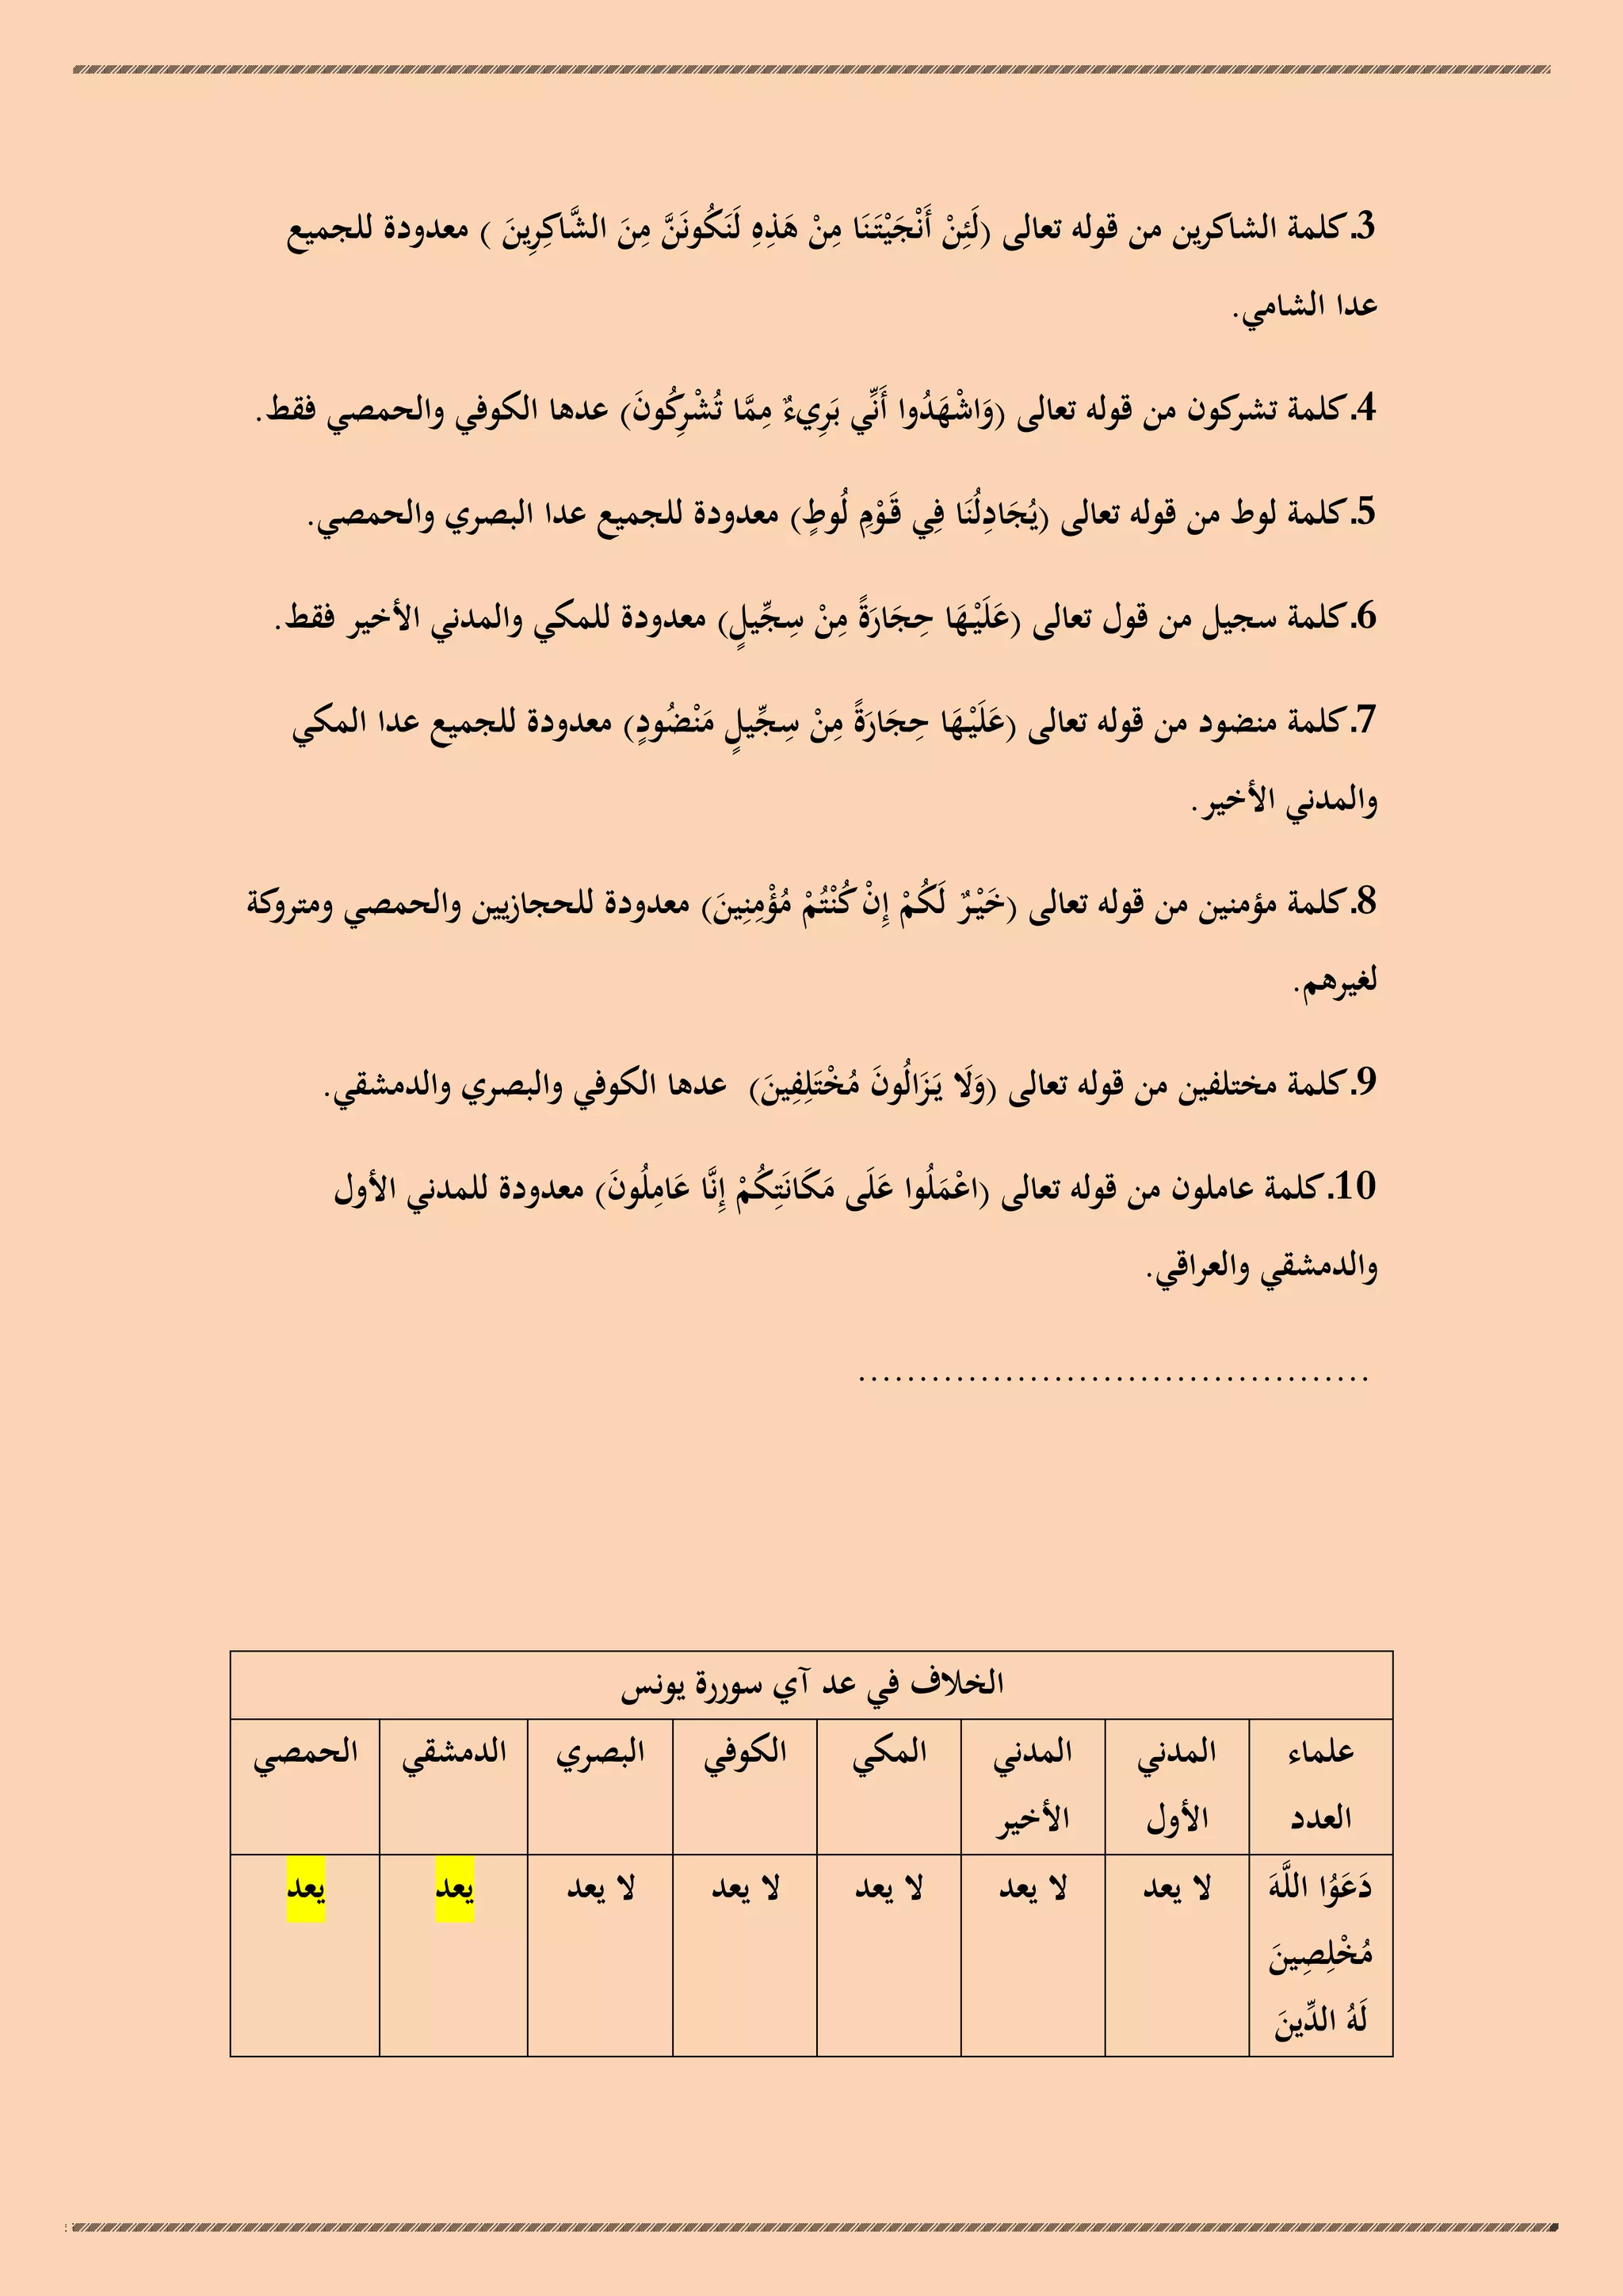 3. كلمة الشاكرين من قوله تعالى (لَئِنْ أَنْجَيْتَنَا مِنْ هَذِهِ لَنَكُونَنَّ مِنَ الشَّاكِرِينَ ) معدودة للجميع
عدا الشامي.
4. كلمة تشركون من قوله تعالى (وَاشْهَدُوا أَنِّي بَرِيءٌ مِمَّا تُشْرِكُونَ) عدها الكوفي والحمصي فقط.
5. كلمة لوط من قوله تعالى (يُجَادِلُنَا فِي قَوْمِ لُوطٍ) معدودة للجميع عدا البصري والحمصي.
6. كلمة سجيل من قول تعالى (عَلَيْهَا حِجَارَةً مِنْ سِجِّيلٍ) معدودة للمكي والمدني الأخير فقط.
7. كلمة منضود من قوله تعالى (عَلَيْهَا حِجَارَةً مِنْ سِجِّيلٍ مَنْضُودٍ) معدودة للجميع عدا المكي
والمدني الأخير.
8. كلمة مؤمنين من قوله تعالى (خَيْرٌ لَكُمْ إِنْ كُنْتُمْ مُؤْمِنِينَ) معدودة للحجازيين والحمصي ومتروكة
لغيرهم.
9. كلمة مختلفين من قوله تعالى (وَلَا يَزَالُونَ مُخْتَلِفِينَ) عدها الكوفي والبصري والدمشقي.
10. كلمة عاملون من قوله تعالى (اعْمَلُوا عَلَى مَكَانَتِكُمْ إِنَّا عَامِلُونَ) معدودة للمدني الأول
والدمشقي والعراقي.
..........................................
الخلاف في عد آي سوررة يونس
علماء المدني المدني المكي الكوفي البصري الدمشقي الحمصي
العدد الأول الأخير
دَعَوُا اللَّهَ لا يعد لا يعد لا يعد لا يعد لا يعد يعد يعد
مُخْلِصِينَ
لَهُ الدِّينَ